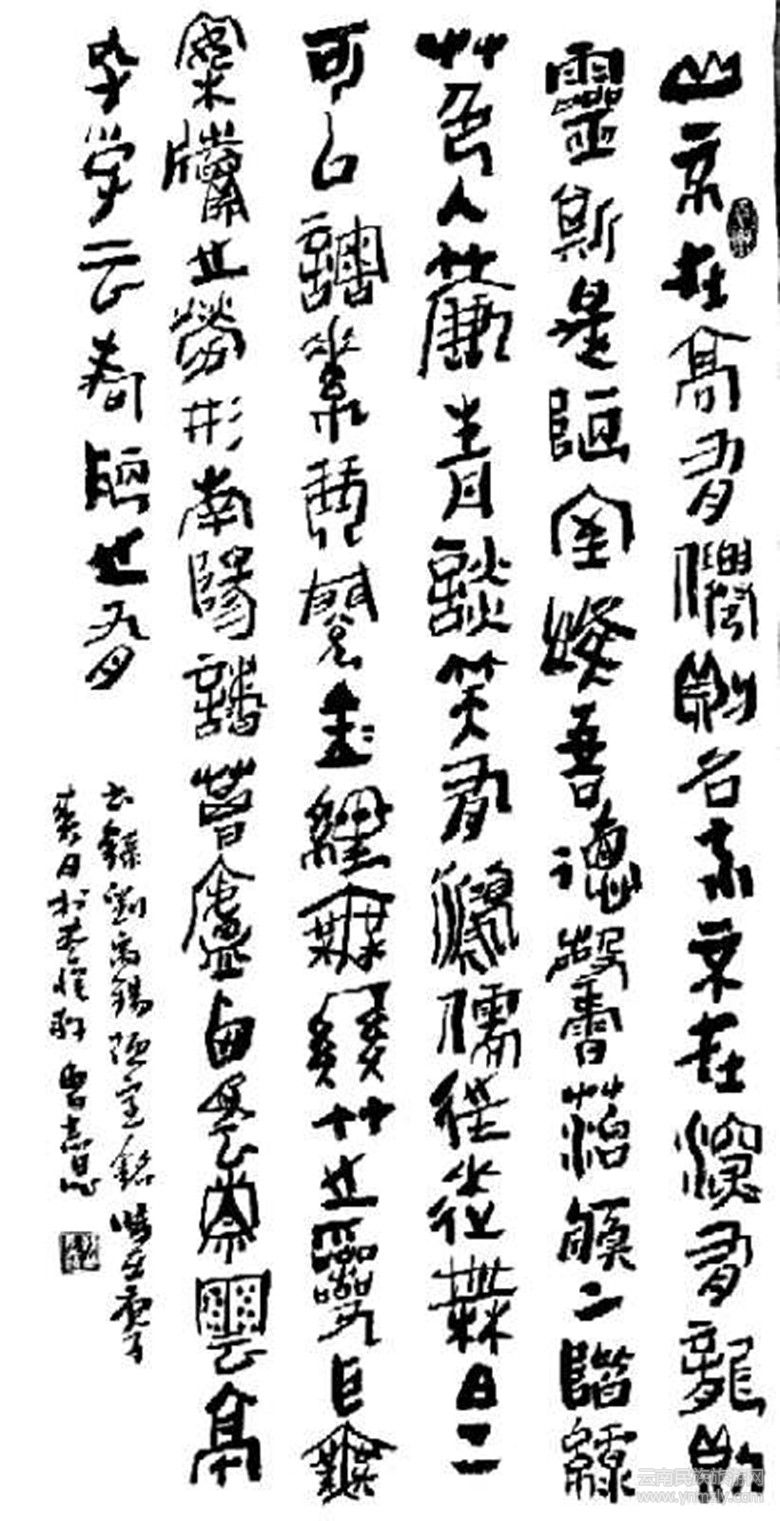 山不在高有僊則名水不在深有龍則
靈斯是陋室惟吾德馨苔痕上階緑
草色入簾青談笑有鴻儒往來無白丁
可以調素琴閲金經無絲竹之亂耳無
案牘之勞形南陽諸葛廬西蜀子雲亭
孔子云何陋之有
劉禹錫陋室銘時在
云南民族旅游网
www.ynmzly.com